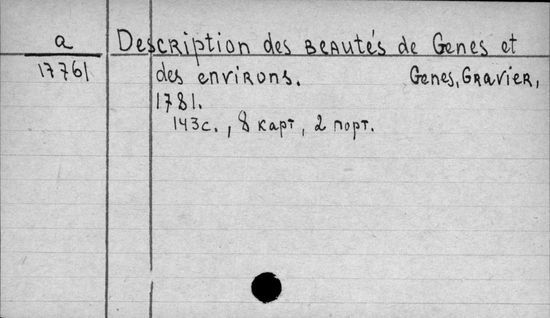 a Description des beautés de Genes et
17761 des environs. Genes, Gravier,
1781.
143с., 8 карт, 2 порт.